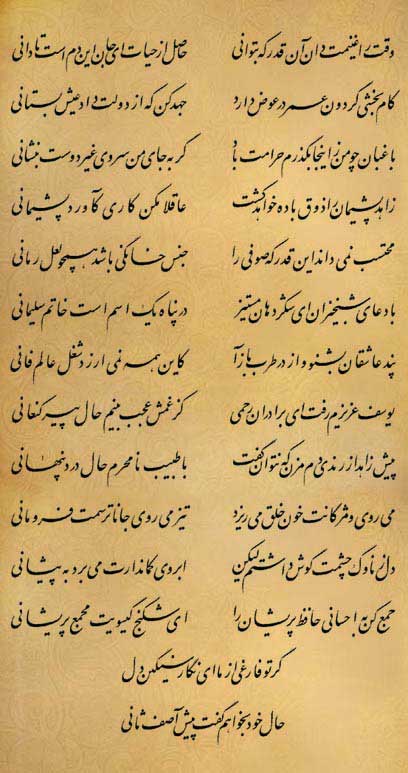 وقت را غنیمت دان آن قدر که بتوانی حاصل از حیات ای جان این دم است تا دانی
کام بخشی گردون عمر در عوض دارد جهد کن که از دولت داد عیش بستانی
باغبان چو من ز اینجا بگذرم حرامت باد گر به جای من سروی غیر دوست بنشانی
زاهد پشیمان را ذوق باده خواهد کشت عاقلا مکن کاری کآورد پشیمانی
محتسب نمی داند این قدر که صوفی را جنس خانگی باشد همچو لعل رمانی
با دعای شبخیزان ای شکردهان مستیز در پناه یک اسم است خاتم سلیمانی
پند عاشقان بشنو و از در طرب بازآ کاین همه نمی ارزد شغل عالم فانی
یوسف عزیزم رفت ای برادران رحمی کز غمش عجب بینم حال پیر کنعانی
پیش زاهد از رندی دم مزن که نتوان گفت با طبیب نامحرم حال درد پنهانی
می روی و مژگانت خون خلق می ریزد تیز می روی جانا ترسمت فرومانی
دل ز ناوک چشمت گوش داشتم لیکن ابروی کماندارت می برد به پیشانی
جمع کن به احسانی حافظ پریشان را ای شکنج گیسویت مجمع پریشانی
گر تو فارغی از ما ای نگار سنگین دل
حال خود بخواهم گفت پیش آصف ثانی